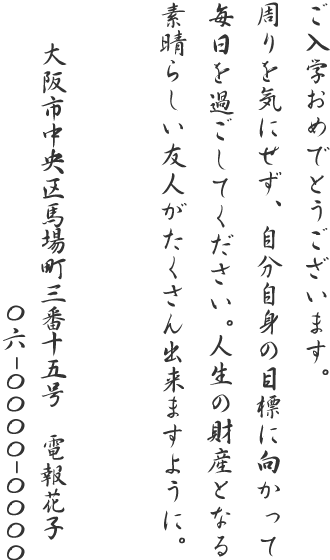 ご入学おめでとうございます。
周りを気にせず、自分自身の目標に向かって
毎日を過ごしてください。人生の財産となる
素晴らしい友人がたくさん出来ますように。
大阪市中央区馬場町三番十五号　電報花子
〇六−〇〇〇〇−〇〇〇〇